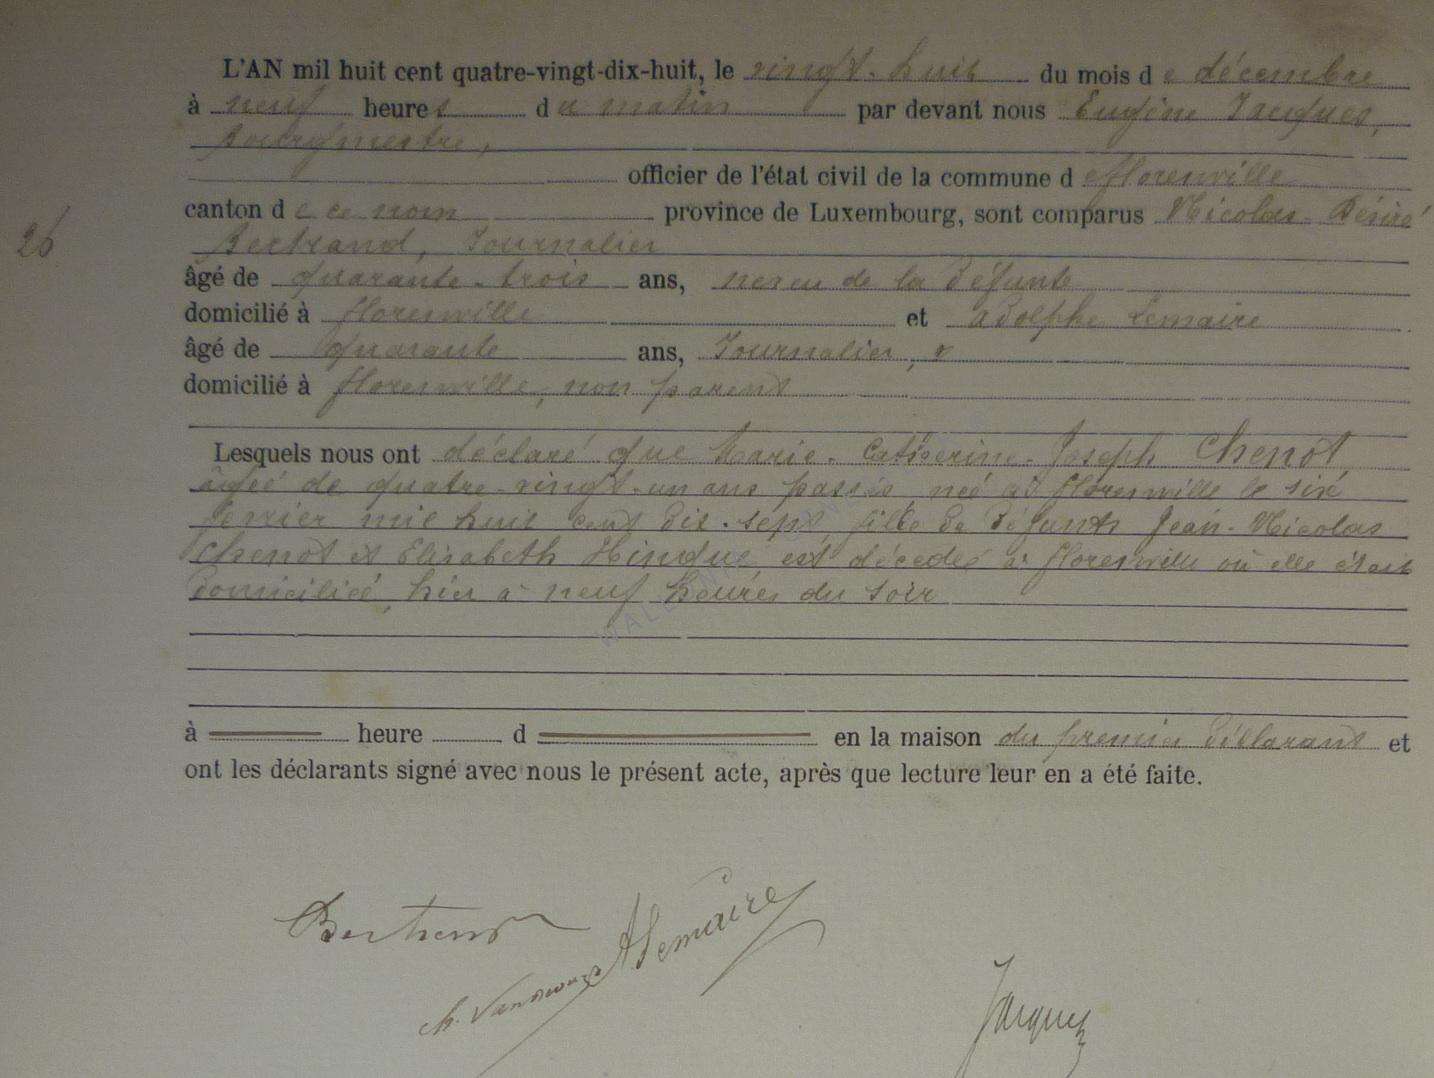 L'AN mil huit cent quatre-vingt-dix-huit, le vingt-huit du mois d e décembre
à neuf heures du matin par devant nous Eugène Jacques,
bourgmestre,
officier de l'état civil de la commune d e florenville
canton d e ce nom province de Luxembourg, sont comparus Nicolas Désiré
26
Bertrand, Journalier
âgé de quarante-trois ans, neveu de la défunte
domicilié à florenville et Adolphe Lemaire
âgé de quarante ans, Journalier,
domicilié à florenville, non parent
Lesquels nous ont déclaré que Marie-Catherine-Joseph Chenot,
âgée de quatre-vingt-un ans passés, née à florenville le six
février mil huit cent dix-sept, fille de défunts Jean-Nicolas
Chenot et Elisabeth est décédée à florenville où elle était
domiciliée, hier à neuf heures du soir
à heure d en la maison du premier déclarant et
ont les déclarants signé avec nous le présent acte, après que lecture leur en a été faite.
Bertrand
A Lemaire
Jacques